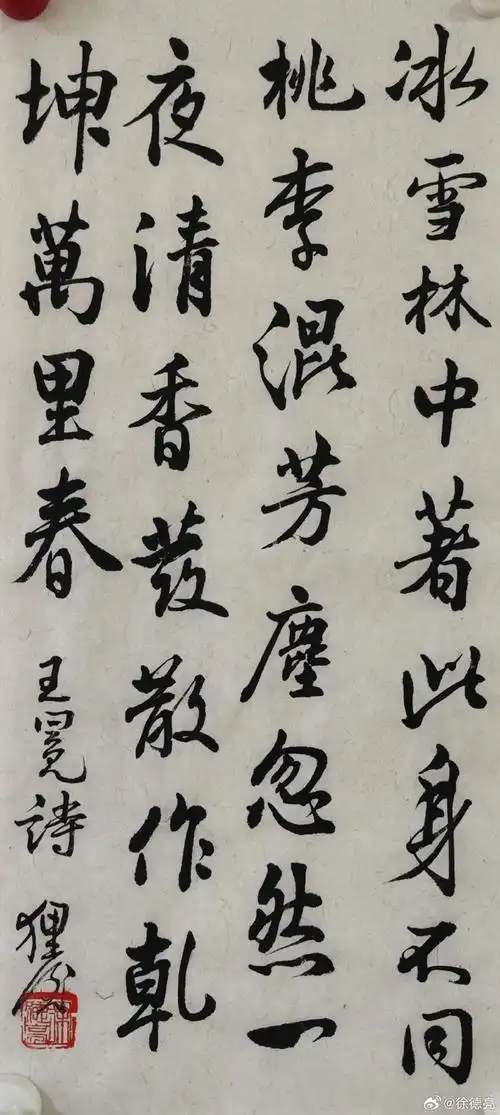 冰雪林中著此身不同
桃李混芳塵忽然一
夜清香發散作乾
坤萬里春
王冕詩
@徐德亮